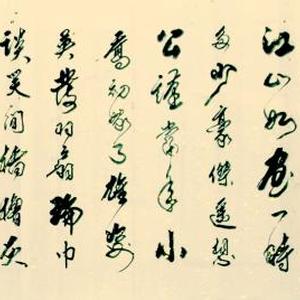 江山如畫一時
多少豪傑遥想
公瑾當年小
喬初嫁了雄姿
英發羽扇綸巾
談笑間檣櫓灰